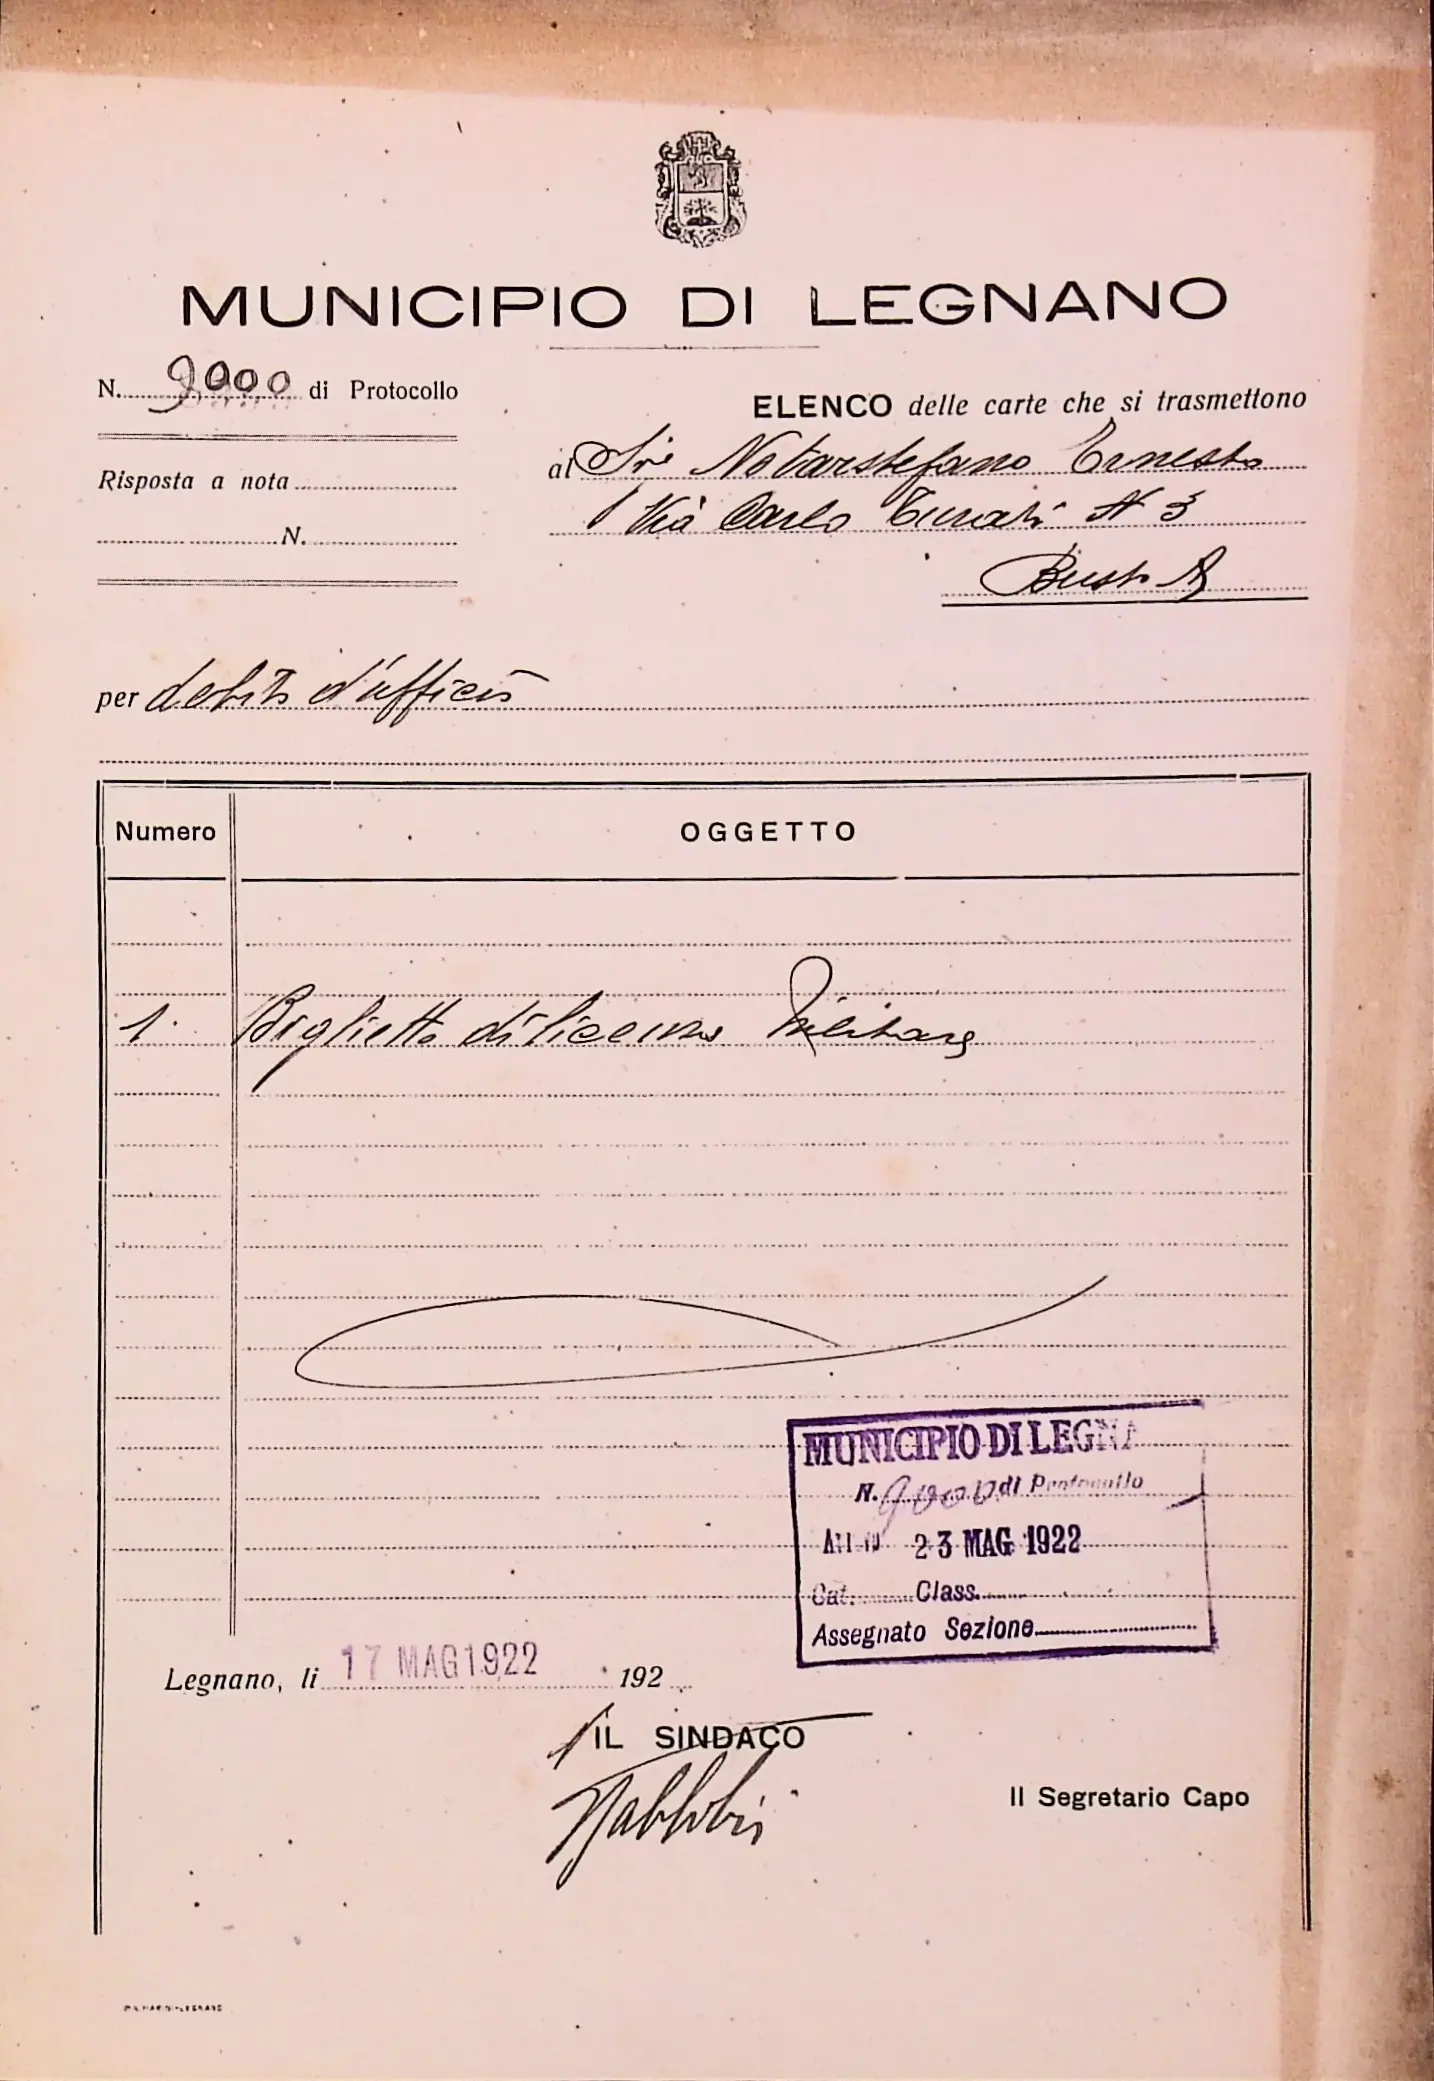 MUNICIPIO DI LEGNANO
N. 9000 di Protocollo
ELENCO delle carte che si trasmettono
al Sig Notarstefano Ernesto
Via Carlo Turati N 3
Busto A
Risposta a nota
N.
per debito d'ufficio
Numero
OGGETTO
1. Biglietto di licenza Militare
MUNICIPIO DI LEGNA
N. 9000 di Protocollo
23 MAG 1922
Cat. Class.
Assegnato Sezione
Legnano, li 17 MAG 1922 192
IL SINDACO
Il Segretario Capo